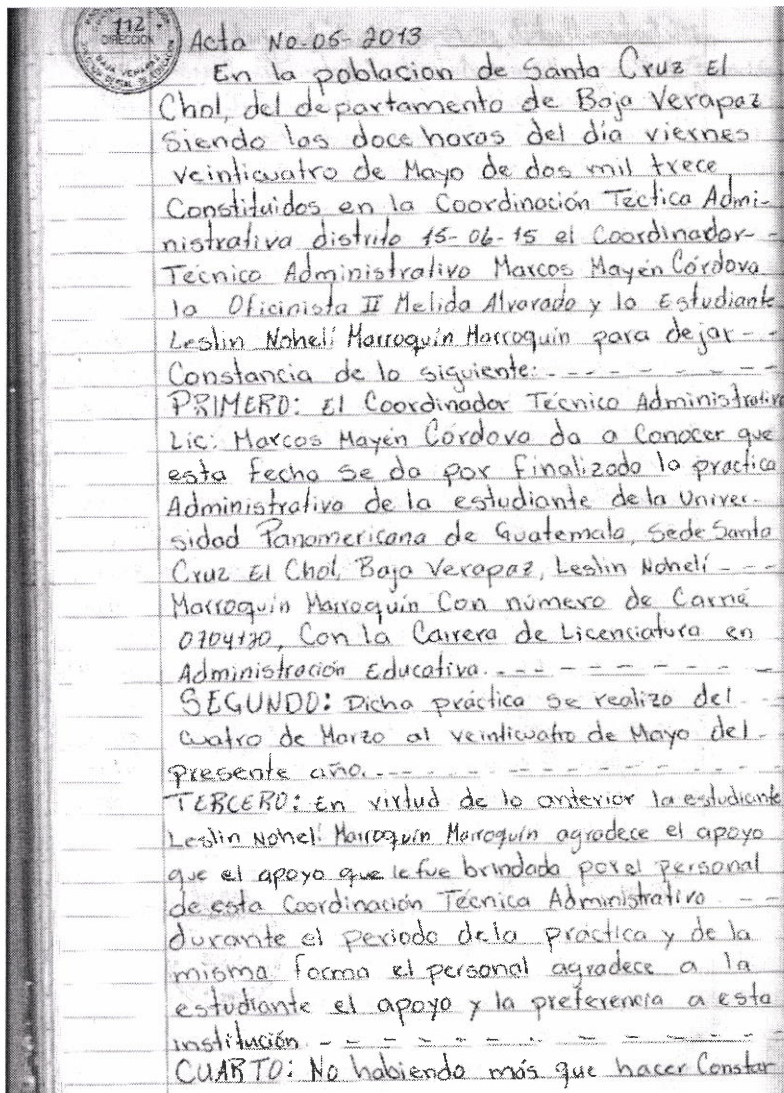 112
DIRECCION
Acta No. 05-2013
En la poblacion de Santa Cruz El
Chol, del departamento de Baja Verapaz
siendo las doce horas del día viernes
veinticuatro de Mayo de dos mil trece
Constituidos en la Coordinación Tectica Admi-
nistrativa distrito 15-06-15 el Coordinador-
Tecnico Administrativo Marcos Mayén Córdova
la Oficinista II Melida Alvarado y la Estudiante
Leslin Nohelí Marroquín Marroquin para dejar--
Constancia de lo siguiente:--------
PRIMERO: El Coordinador Técnico Administrativo
Lic: Marcos Mayén Córdova da a Conocer que
esta fecha se da por finalizado la practica
Administrativa de la estudiante de la Univer-
sidad Panamericana de Guatemala, Sede Santa
Cruz El Chol, Baja Verapaz, Leslin Nohelí---
Marroquín Marroquín Con número de Carné
Con la Carrera de Licenciatura en
Administración Educativa.---------
SEGUNDO: Dicha práctica se realizo del--
cuatro de Marzo al veinticuatro de Mayo del-
presente año.-----------
TERCERO: En virtud de lo anterior la estudiante
Leslin Nohelí Marroquín Marroquín agradece el apoyo
que el apoyo que le fue brindada por el personal
de esta Coordinación Técnica Administrativo--
durante el periodo de la práctica y de la
misma forma el personal agradece a la
estudiante el apoyo y la preferencia a esta
institución------------
CUARTO: No habiendo más que hacer Constar